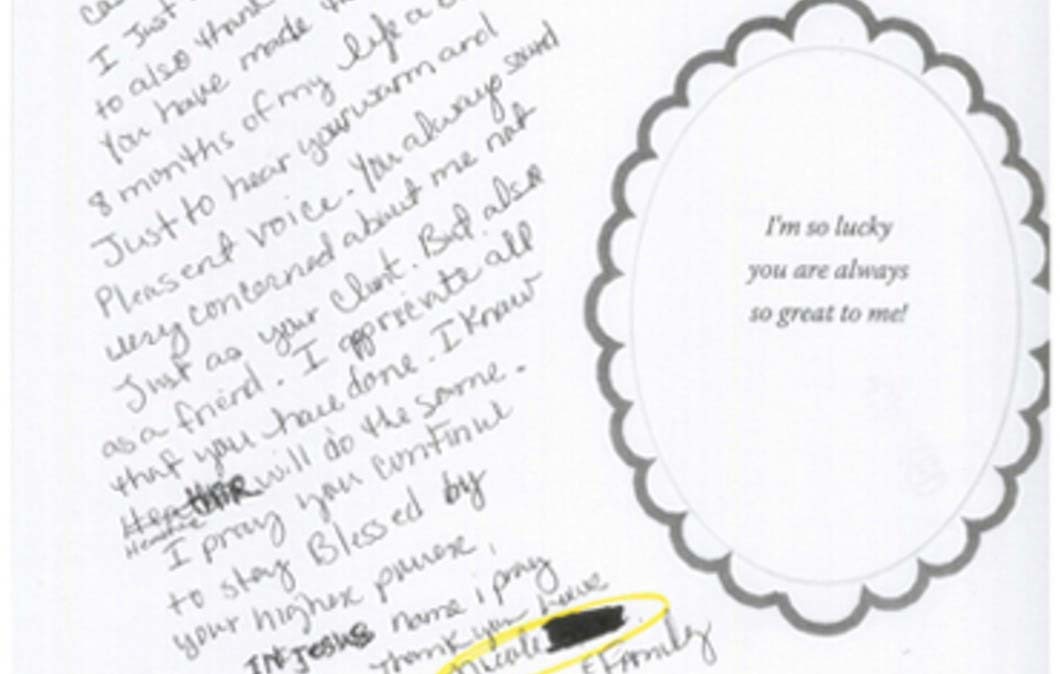 I Just
to also thank
You have made
8 months of my life a
Just to hear your warm and
Pleasent voice. You always sound
very concerned about me not
Just as your Client. But also
as a friend. I appriciate all
that you have done. I know
will do the same.
I pray you continue
to stay Blessed by
your higher
IN Jesus name i pray
Thank you
& Family
I'm so lucky
you are always
so great to me!